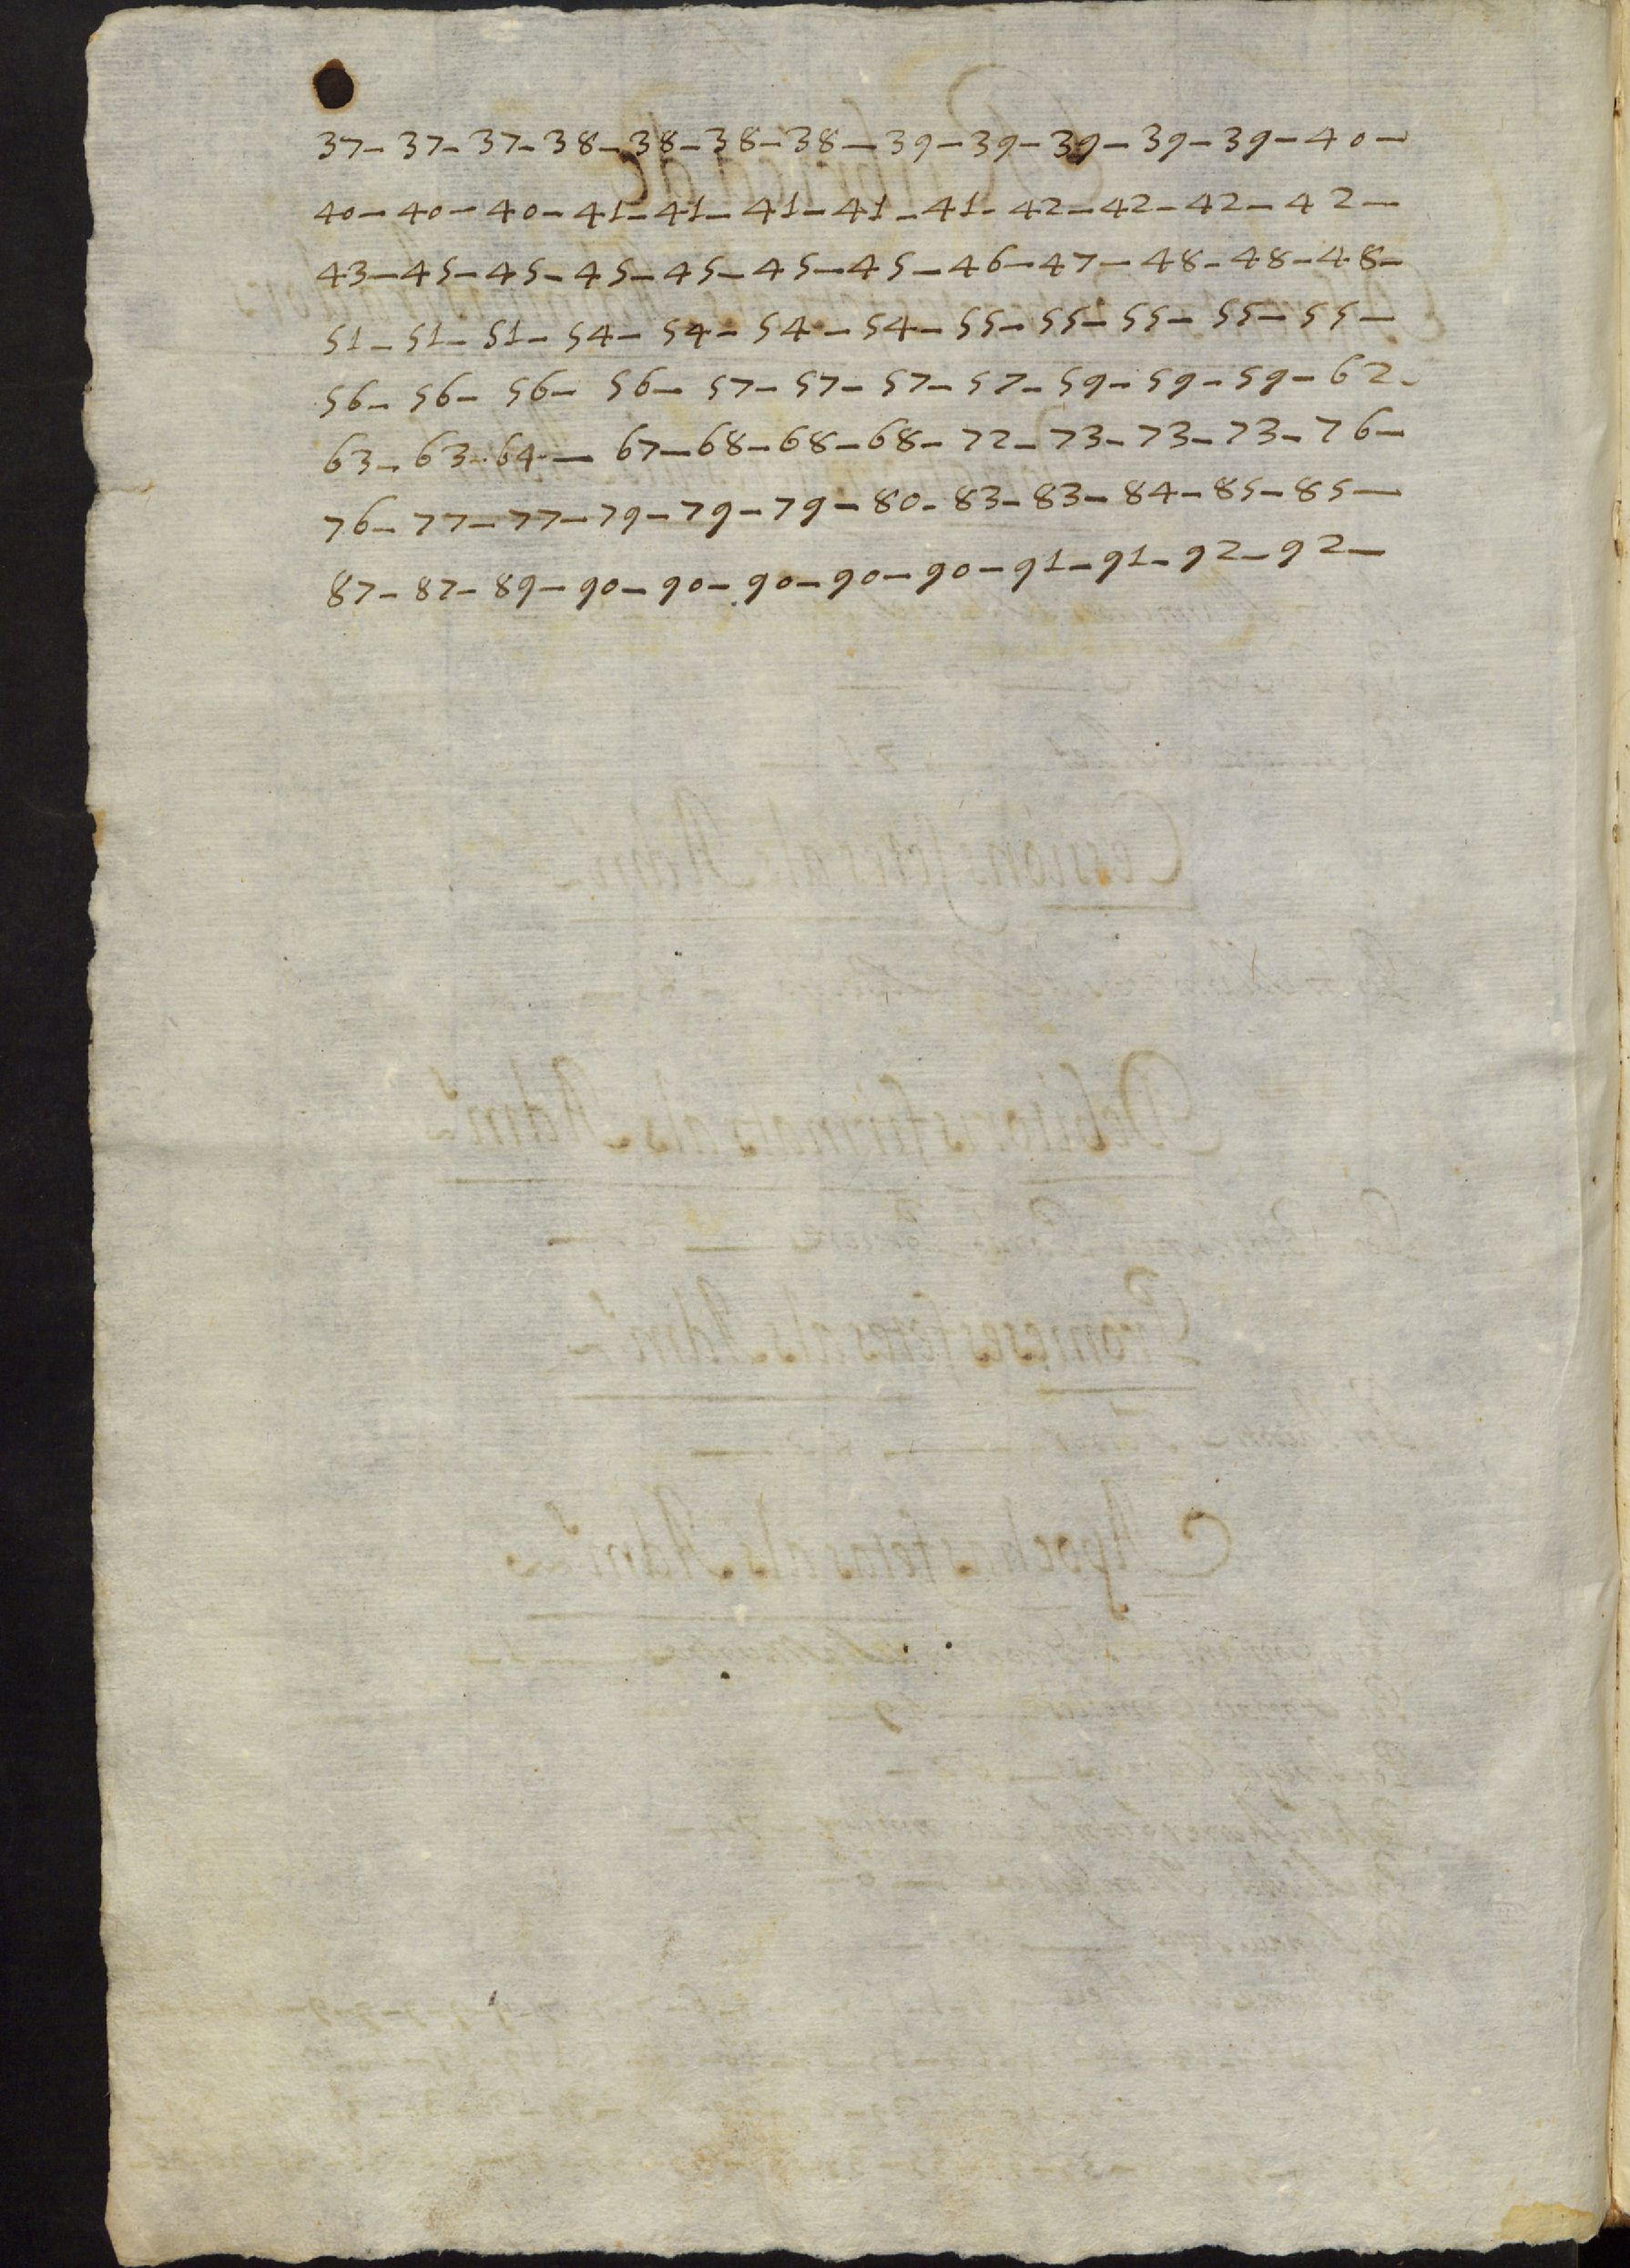 37- 37- 37- 38- 38- 38- 38- 39- 39- 39- 39- 39- 40-
40- 40- 40- 41- 41- 41- 41- 41- 42- 42- 42- 42-
43- 45- 45- 45- 45- 45- 45- 46- 47- 48- 48- 48-
51- 51- 51- 54- 54- 54- 54- 55- 55- 55- 55- 55-
56- 56- 56- 56- 57- 57- 57- 57- 59- 59- 59- 62-
63- 63- 64- 67- 68- 68- 68- 72- 73- 73- 73- 76-
76- 77- 77- 79- 79- 79- 80- 83- 83- 84- 85- 85-
87- 87- 89- 90- 90- 90- 90- 90- 91- 91- 92- 92-